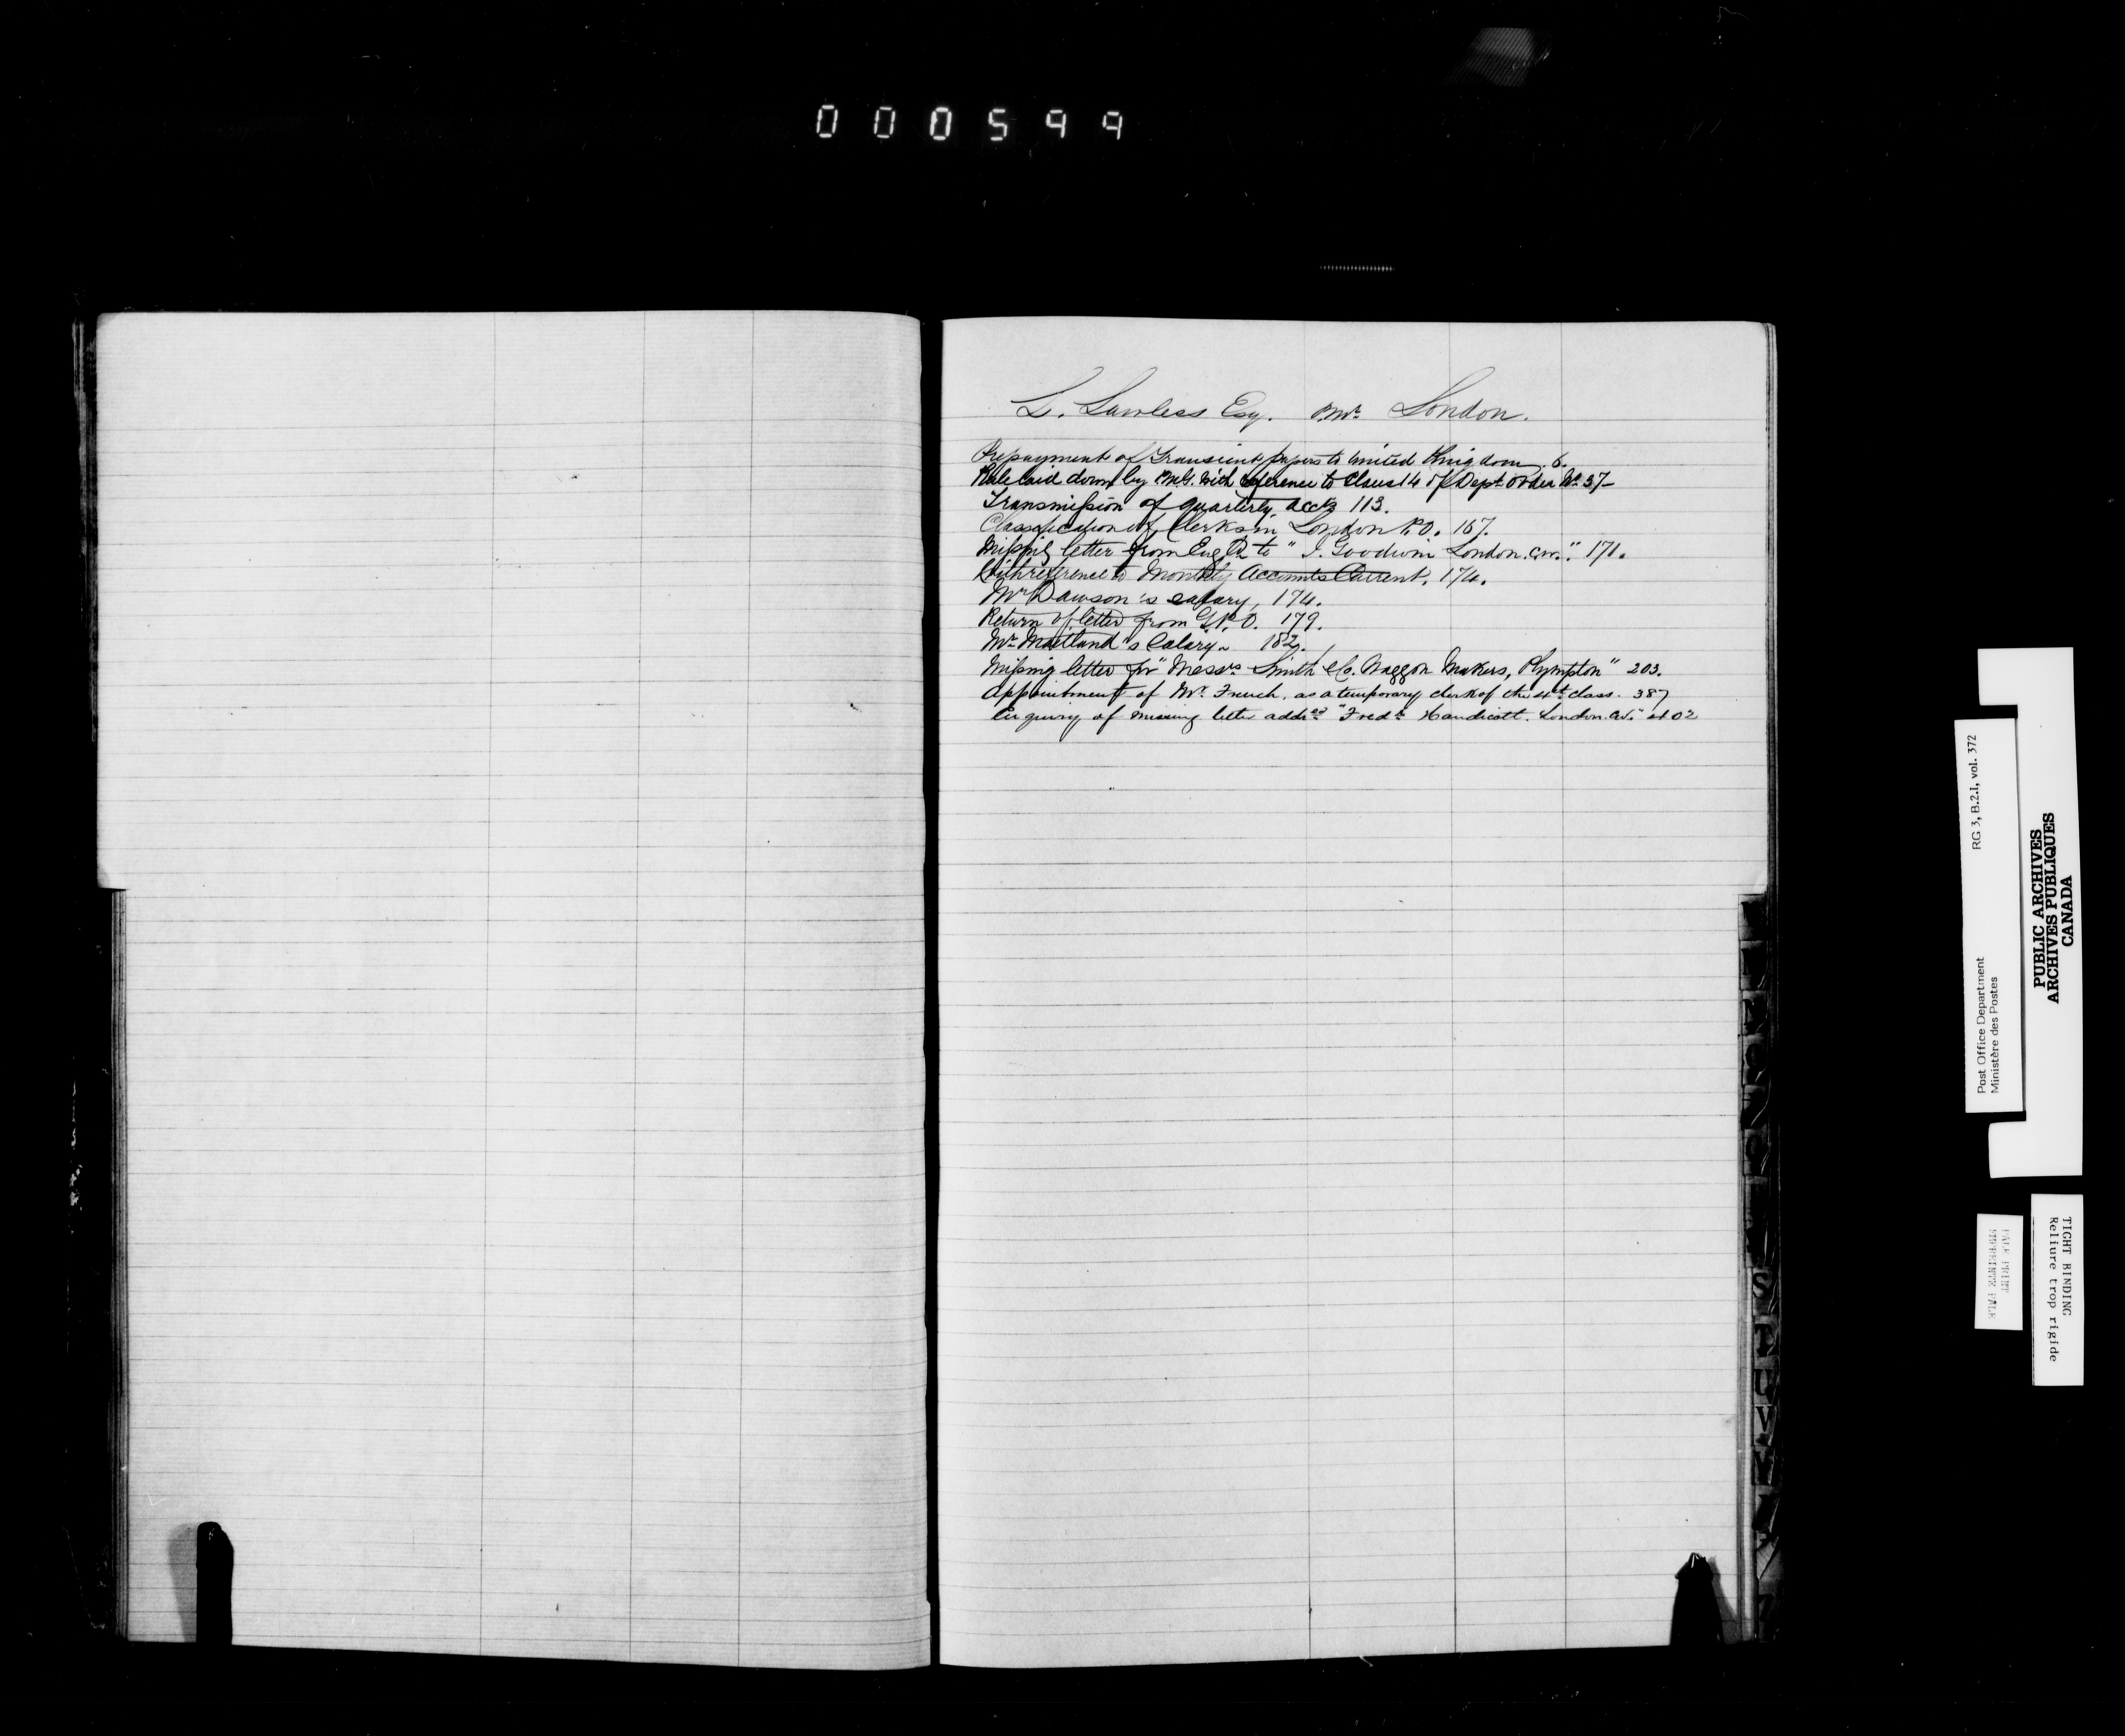 000599
L. Lawless Esq. P.Mr. London.
Prepayment of Transient papers to United Kingdom. 6.
Rule laid down by PMG. with reference to Clause 14 of Dept. Order No. 37-
Transmission of quarterly accts 113.
Classification of Clerks in London P.O. 167.
Missing letter from Engld to "J. Goodwin London. C.W." 171.
With reference to Monthly Accounts Current, 174.
Mr. Dawson's salary, 174.
Return of letter from G.P.O. 179.
Mr. Maitland's Salary. 182.
Missing letter for "Messrs. Smith & Co. Waggon Makers, Plympton" 203.
Appointment of Mr. French, as a temporary clerk of the 4th class. 387
Enquiry of missing letter addsed "Fredk Handicott. London. C.W." 402
S
T
U
V
RG 3, B.2.1, vol. 372
Post Office Department
Ministère des Postes
PUBLIC ARCHIVES
ARCHIVES PUBLIQUES
CANADA
TIGHT BINDING
Reliure trop rigide
PALE PRINT